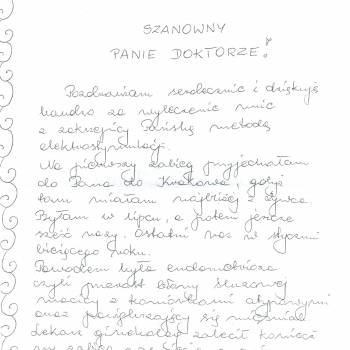 SZANOWNY
PANIE DOKTORZE!
Pozdrawiam serdecznie i dziękuję
bardzo za wyleczenie mnie
z zaknejpcy Pańską metodą
elektrostymulacji.
Na pierwszy zabieg przyjechałam
do Pana do Krakowa, gdyż
tam miałam najbliżej z Żywca.
Byłam w lipcu, a potem jeszcze
sześć razy. Ostatni raz w styczniu
bieżącego roku.
Powodem była endometrioza
czyli przerost błony śluzowej
macicy z komórkami atypowymi
oraz powiększający się mięśniak
Lekarz ginekolog zalecił